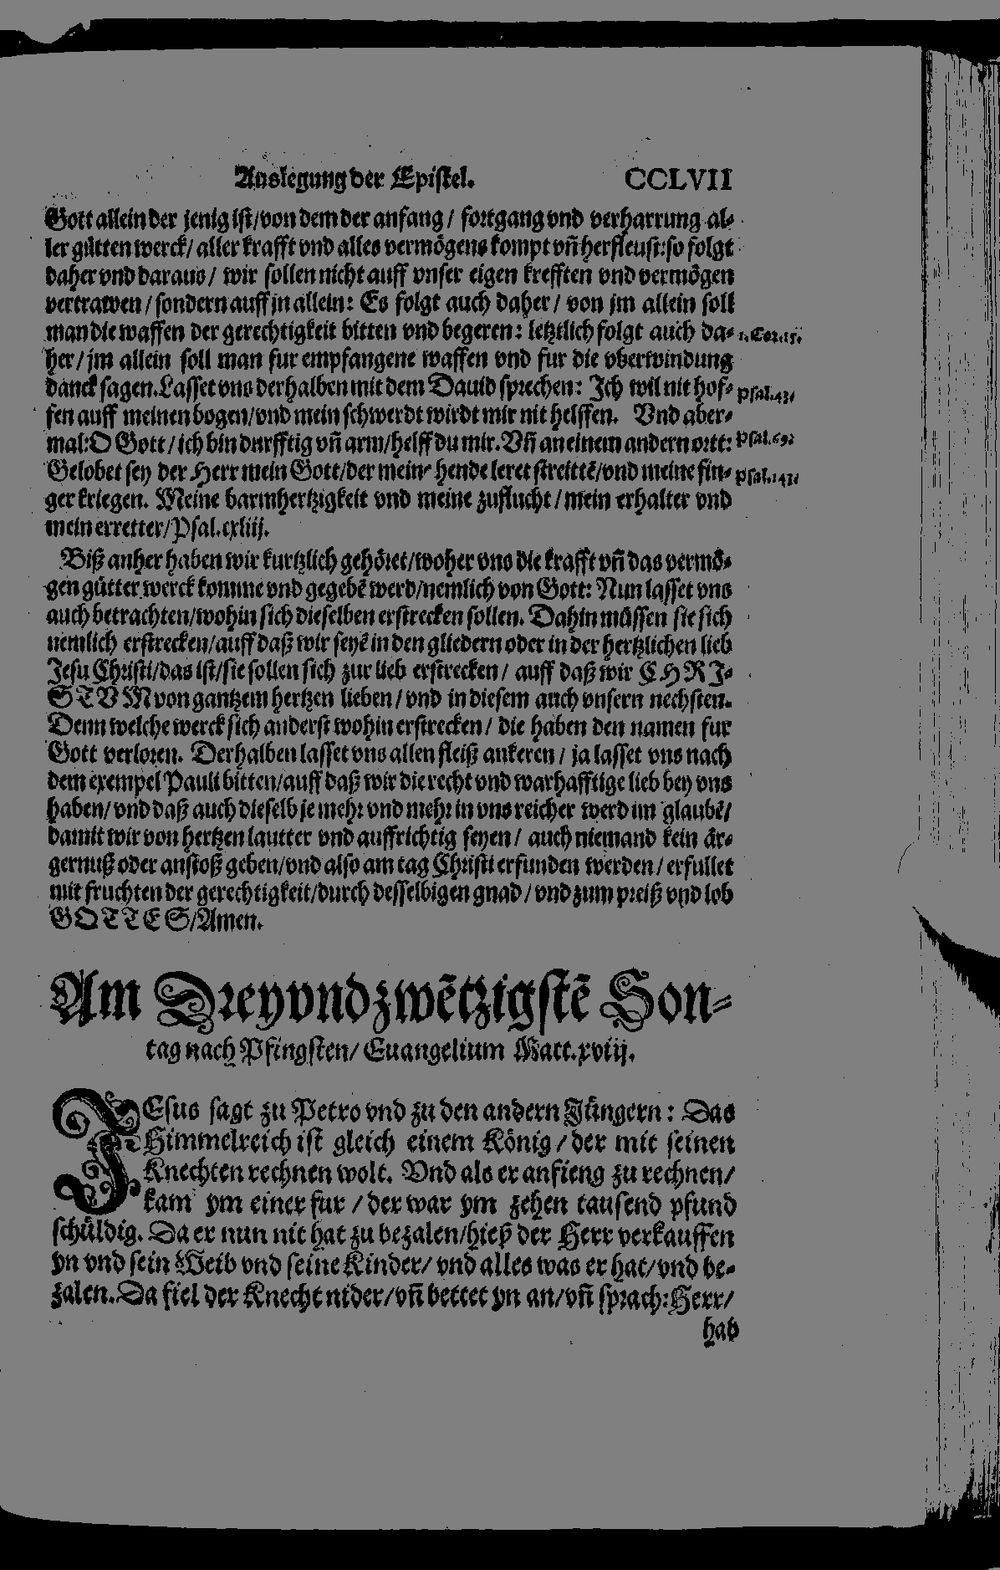 Auslegung der Epistel. CCLVII
Gott allein der jenig ist/von dem der anfang/ fortgang vnd verharrung al-
ler gůtten werck/ aller krafft vnd alles vermögens kompt vñ herfleust: so folgt
daher vnd daraus/ wir sollen nicht auff vnser eigen krefften vnd vermögen
vertrawen/ sondern auff jn allein: Es folgt auch daher/ von jm allein soll
man die waffen der gerechtigkeit bitten vnd begeren: letztlich folgt auch da-
her/ jm allein soll man fur empfangene waffen vnd fur die vberwindung
danck sagen. Lasset vns derhalben mit dem Dauid sprechen: Ich wil nit hof-
fen auff meinen bogen/vnd mein schwerdt wirdt mir nit helffen. Vnd aber-
mal: O Gott/ ich bin durfftig vñ arm/helff du mir. Vñ an einem andern ortt:
Gelobet sey der Herr mein Gott/der mein hende leret streittẽ/vnd meine fin-
ger kriegen. Meine barmhertzigkeit vnd meine zuflucht/ mein erhalter vnd
mein erretter/Psal.cxliij.
1.Cor.15.
Psal.43.
Psal.69.
Psal.143.
Biß anher haben wir kurtzlich gehöret/woher vns die krafft vñ das vermö-
gen gůtter werck komme vnd gegebẽ werd/nemlich von Gott: Nun lasset vns
auch betrachten/wohin sich dieselben erstrecken sollen. Dahin müssen sie sich
nemlich erstrecken/auff daß wir seyẽ in den gliedern oder in der hertzlichen lieb
Jesu Christi/das ist/sie sollen sich zur lieb erstrecken/ auff daß wir CHRI-
STVM von gantzem hertzen lieben/ vnd in diesem auch vnsern nechsten.
Denn welche werck sich anderst wohin erstrecken/ die haben den namen fur
Gott verloren. Derhalben lasset vns allen fleiß ankeren/ ja lasset vns nach
dem exempel Pauli bitten/auff daß wir die recht vnd warhafftige lieb bey vns
haben/ vnd daß auch dieselb je mehr vnd mehr in vns reicher werd im glaubẽ/
damit wir von hertzen lautter vnd auffrichtig seyen/ auch niemand kein är-
gernuß oder anstoß geben/vnd also am tag Christi erfunden werden/ erfullet
mit fruchten der gerechtigkeit/durch desselbigen gnad/ vnd zum preiß vnd lob
GOTTES/Amen.
Am Dreyvndzwẽtzigstẽ Son-
tag nach Pfingsten/ Euangelium Matt.xviij.
JEsus sagt zu Petro vnd zu den andern Jüngern: Das
Himmelreich ist gleich einem König/ der mit seinen
Knechten rechnen wolt. Vnd als er anfieng zu rechnen/
kam ym einer fur/ der war ym zehen tausend pfund
schüldig. Da er nun nit hat zu bezalen/hieß der Herr verkauffen
yn vnd sein Weib vnd seine Kinder/ vnd alles was er hat/vnd be-
zalen. Da fiel der Knecht nider/vñ bettet yn an/vñ sprach: Herr/
hab